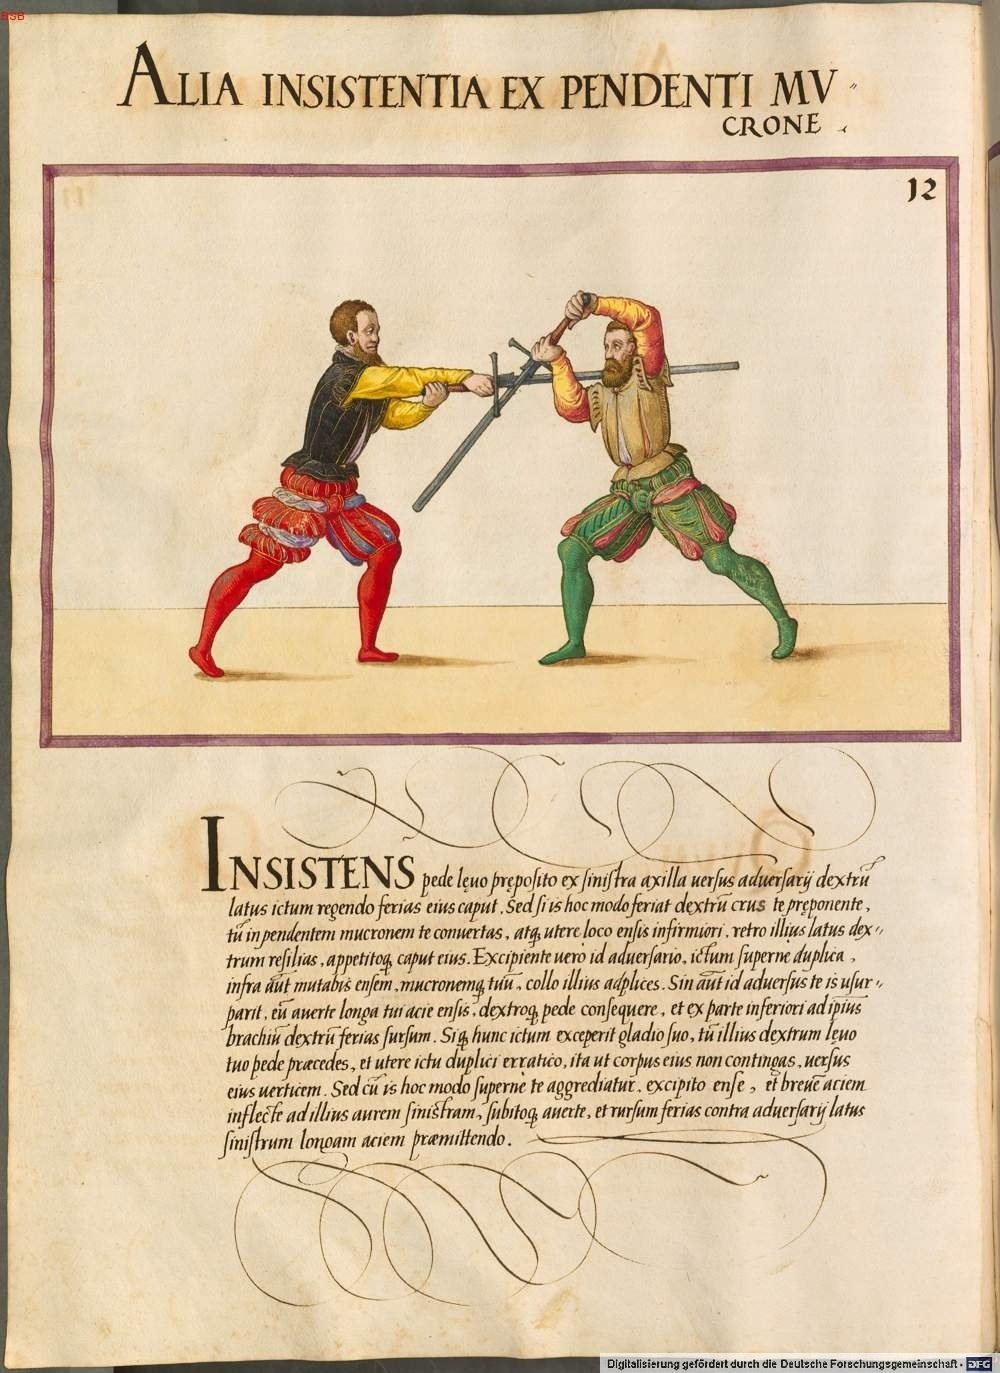 BSB
ALIA INSISTENTIA EX PENDENTI MV〃
CRONE.
12
INSISTENS pede lęuo pręposito ex sinistra axilla uersus aduersarij dextrũ
latus ictum regendo ferias eius caput. Sed si is hoc modo feriat dextrũ crus te pręponente,
tũ in pendentem mucronem te conuertas, atq, utere loco ensis infirmiori, retro illius latus dex〃
trum resilias, appetitoq, caput eius. Excipiente uero id aduersario, ictum superne duplica,
infra aũt mutabis ensem, mucronemq, tuũ, collo illius adplices. Sin aũt id aduersus te is usur〃
parit, eũ auerte longa tui acie ensis, dextroq, pede consequere, et ex parte inferiori ad ipius
brachiũ dextrũ ferias sursum. Siq, hunc ictum exceperit gladio suo, tũ illius dextrum lęuo
tuo pede præcedes, et utere ictu duplici erratico, ita ut corpus eius non contingas, uersus
eius uerticem. Sed cũ is hoc modo supernè te aggrediatur, excipito ense, et breuẽ aciem
inflecte ad illius aurem sinistram, subitoq, auerte, et rursum ferias contra aduersarij latus
sinistrum longam aciem præmittendo.
Digitalisierung gefördert durch die Deutsche Forschungsgemeinschaft - DFG